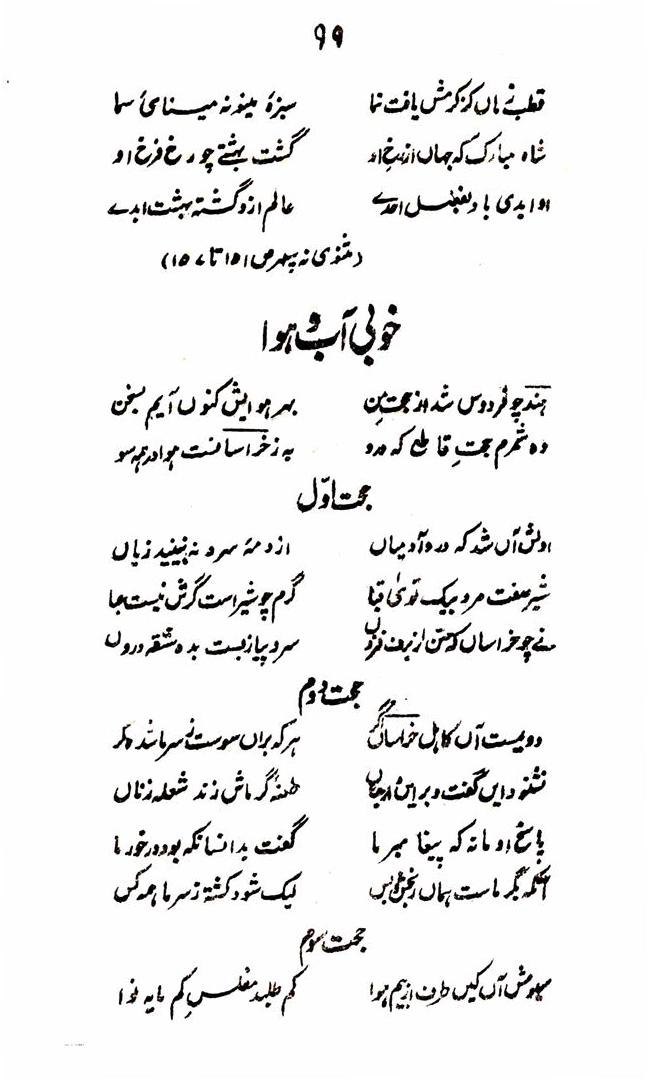 ۹۹
قطب نے ہاں کز کرمش یافت نما سبزهٔ مینو نہ مینائ سما
شاہ مبارک کہ جہاں از رخ او گشت بہشتے چو رخ فرخ او
او ابدی باد بفضل احدے عالم ازو گشتہ بہشت ابدے
(مثنوی نہ سپہر ص ۱۵۱ تا ۱۵۷)
خوبی آب و ہوا
ہند چو فردوس شد از حجت من بہر ہوایش کنوں آیم بسخن
دہ شمرم حجتِ قاطع کہ درو بہ ز خراسانست ہوا در ہمہ سو
حجت اوّل
اولش آں شد کہ درو آدمیاں از دمۂ سرد نہ بینند زیاں
شیر صفت مرد بیک توئ قبا گرم چو شیر است گرش نیست جا
نے چو خراساں کہ تن از برف فزوں سرد پیاز بست بدہ شقہ دروں
حجت دوم
دویمست آں کاہل خراساں ہر کہ براں سوست ز سرما شد
نشنود ایں گفت و بریں طعنۂ گرماش زند شعلہ زناں
پاسخ او مانہ کہ پیغامبر ما گفت بدانسانکہ بود در خور ما
آنکہ بگرماست ہماں رنجش بس لیک شود کشتہ ز سرما ہمہ کس
حجت سوم
سیومش آں کیں طرف از بیم ہوا کم طلبد مفلس کم مایہ نوا